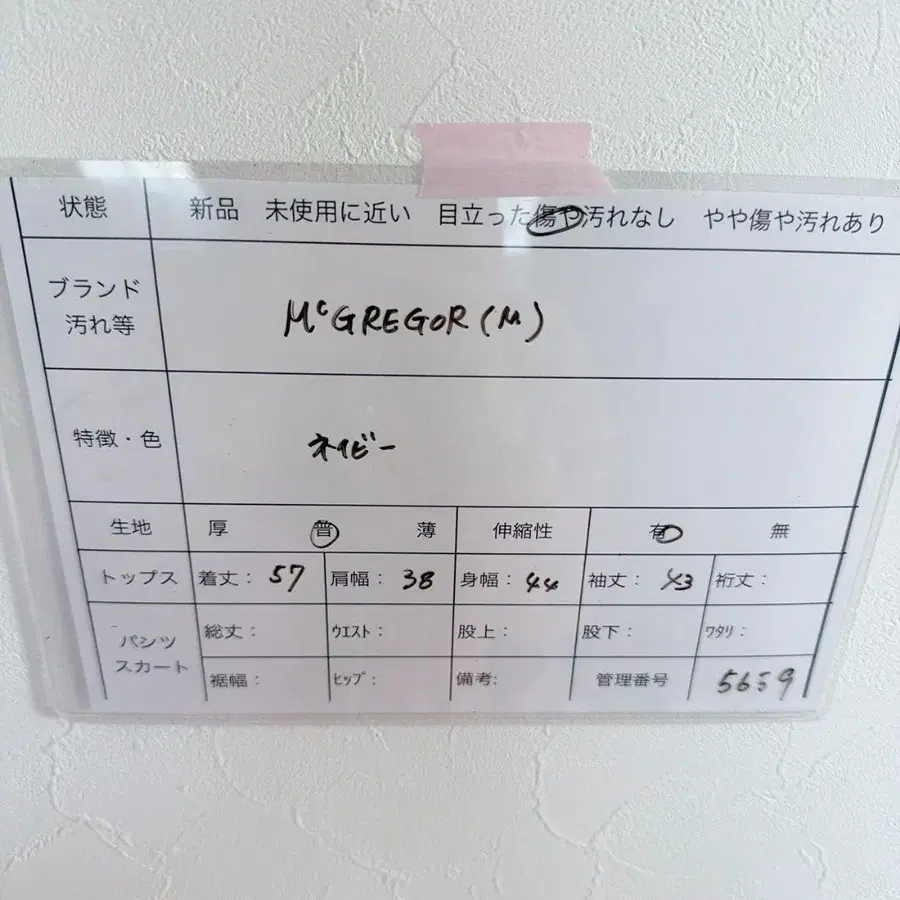 状態 新品 未使用に近い 目立った傷や汚れなし やや傷や汚れあり
ブランド
汚れ等
McGREGOR (M)
特徴・色 ネイビー
生地 厚 普 薄 伸縮性 有 無
トップス 着丈: 57 肩幅: 38 身幅: 44 袖丈: 43 裄丈:
パンツ
スカート
総丈: ウエスト: 股上: 股下: ワタリ:
裾幅: ヒップ: 備考: 管理番号 5659